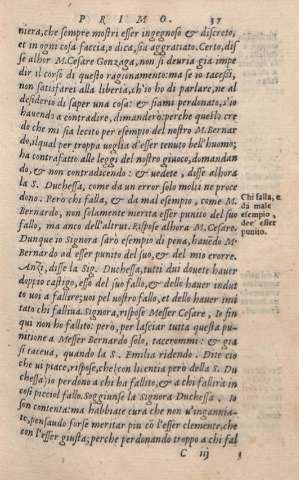 PRIMO. 37
niera, che sempre mostri esser ingegnoso & discreto,
et in ogni cosa faccia, o dica, sia aggratiato. Certo, dis
se alhor M. Cesare Gonzaga, non si deuria gia impe
dir il corso di questo ragionamento: ma se io tacessi,
non satisfarei alla libertà, ch'io ho di parlare, ne al
desiderio di saper una cosa: & siami perdonato, s'io
hauendo a contradire, dimanderò: perche questo cre
do che mi sia lecito per esempio del nostro M. Bernar
do, ilqual per troppa voglia d'esser tenuto bell'huomo;
ha contrafatto alle leggi del nostro giuoco, domanan
do, & non contradicendo: & uedete, disse alhora
la S. Duchessa, come da un error solo molti ne proce
dono. Però chi falla, & da mal esempio, come M.
Bernardo, non solamente merita esser punito del suo
fallo, ma anco dell'altrui. Rispose alhora M. Cesare.
Dunque io Signora sarò esempio di pena, hauẽdo M.
Bernardo ad esser punito del suo, & del mio errore.
Anzi, disse la Sig. Duchessa, tutti dui douete hauer
doppio castigo, esso del suo fallo, & dello hauer indut
to uoi a fallire; uoi pel nostro fallo, et dello hauer imi
tato chi fallaua. Signora, rispose Messer Cesare, Io fin
qui non ho fallito: però, per lasciar tutta questa pu-
nitione a Messer Bernardo solo, tacerommi: & gia
si taceua, quando la S. Emilia ridendo. Dite ciò
che ui piace, rispose, che (con licentia però della S. Du
chessa) io perdono a chi ha fallito, & a chi fallirà in
cosi picciol fallo. Soggiunse la Signora Duchessa. Io
son contenta: ma habbiate cura che non u'inganniа-
te, pensando forse meritar piu cō l'esser clemente, che
con l'esser giusta; perche perdonando troppo a chi fal
C iij
Chi falla, e
da male
esempio,
dee esser
punito.